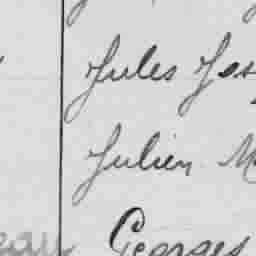 Jules Jos
Julien M
eau Georges